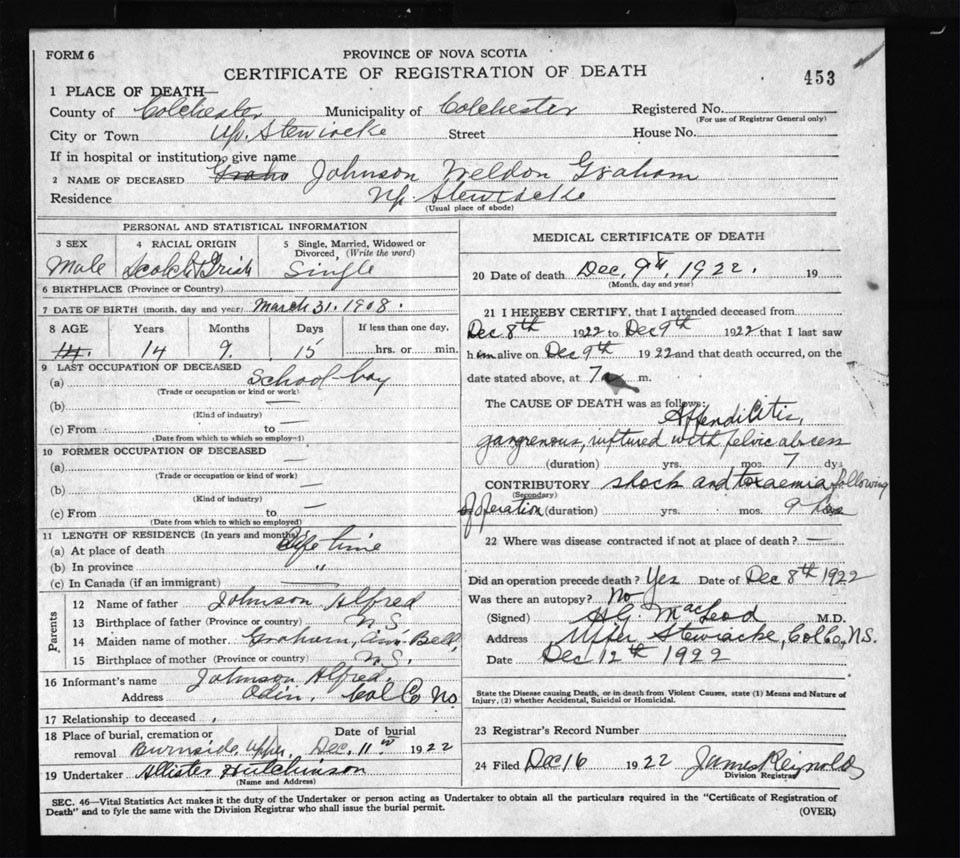 FORM 6
PROVINCE OF NOVA SCOTIA
CERTIFICATE OF REGISTRATION OF DEATH
453
1 PLACE OF DEATH—
County of Colchester Municipality of Colchester Registered No.
(For use of Registrar General only)
City or Town Up. Stewiacke Street House No.
If in hospital or institution, give name
2 NAME OF DECEASED Johnson Weldon Graham
Residence Up. Stewiacke
(Usual place of abode)
PERSONAL AND STATISTICAL INFORMATION
3 SEX 4 RACIAL ORIGIN 5 Single, Married, Widowed or Divorced, (Write the word)
Male Scotch & Irish Single
6 BIRTHPLACE (Province or Country)
7 DATE OF BIRTH (month, day and year) March 31. 1908.
8 AGE Years Months Days If less than one day,
14. 14 9. 15 hrs. or min.
9 LAST OCCUPATION OF DECEASED
(a) School boy
(Trade or occupation or kind or work)
(b) —
(Kind of industry)
(c) From to —
(Date from which to which so employed)
10 FORMER OCCUPATION OF DECEASED
(a) —
(Trade or occupation or kind of work)
(b) —
(Kind of industry)
(c) From to —
(Date from which to which so employed)
11 LENGTH OF RESIDENCE (In years and months)
(a) At place of death Life time
(b) In province "
(c) In Canada (if an immigrant) —
Parents
12 Name of father Johnson Alfred
13 Birthplace of father (Province or country) N.S.
14 Maiden name of mother Graham, Bell,
15 Birthplace of mother (Province or country) N.S.
16 Informant's name Johnson Alfred.
Address Odin, Col Co NS
17 Relationship to deceased
18 Place of burial, cremation or removal Burnside, Upper, Date of burial Dec. 11th 1922
19 Undertaker Allister Hutchinson
(Name and Address)
MEDICAL CERTIFICATE OF DEATH
20 Date of death Dec. 9th, 1922. 19
(Month, day and year)
21 I HEREBY CERTIFY, that I attended deceased from
Dec 8th 1922 to Dec 9th 1922 that I last saw
him alive on Dec 9th 1922 and that death occurred, on the
date stated above, at 7 a m.
The CAUSE OF DEATH was as follows: Appendicitis,
gangrenous, ruptured with pelvic abscess
(duration) yrs. mos. 7 dys
CONTRIBUTORY shock and toxaemia following
(Secondary)
operation (duration) yrs. mos. 9 hrs
22 Where was disease contracted if not at place of death? —
Did an operation precede death? Yes Date of Dec 8th 1922
Was there an autopsy? No
(Signed) H.G. MacLeod M.D.
Address Upper Stewiacke, Col Co, N.S.
Date Dec 12th 1922
State the Disease causing Death, or in death from Violent Causes, state (1) Means and Nature of
Injury, (2) whether Accidental, Suicidal or Homicidal.
23 Registrar's Record Number
24 Filed Dec 16 1922 James Reynolds
Division Registrar
SEC. 46—Vital Statistics Act makes it the duty of the Undertaker or person acting as Undertaker to obtain all the particulars required in the "Certificate of Registration of
Death" and to fyle the same with the Division Registrar who shall issue the burial permit.
(OVER)